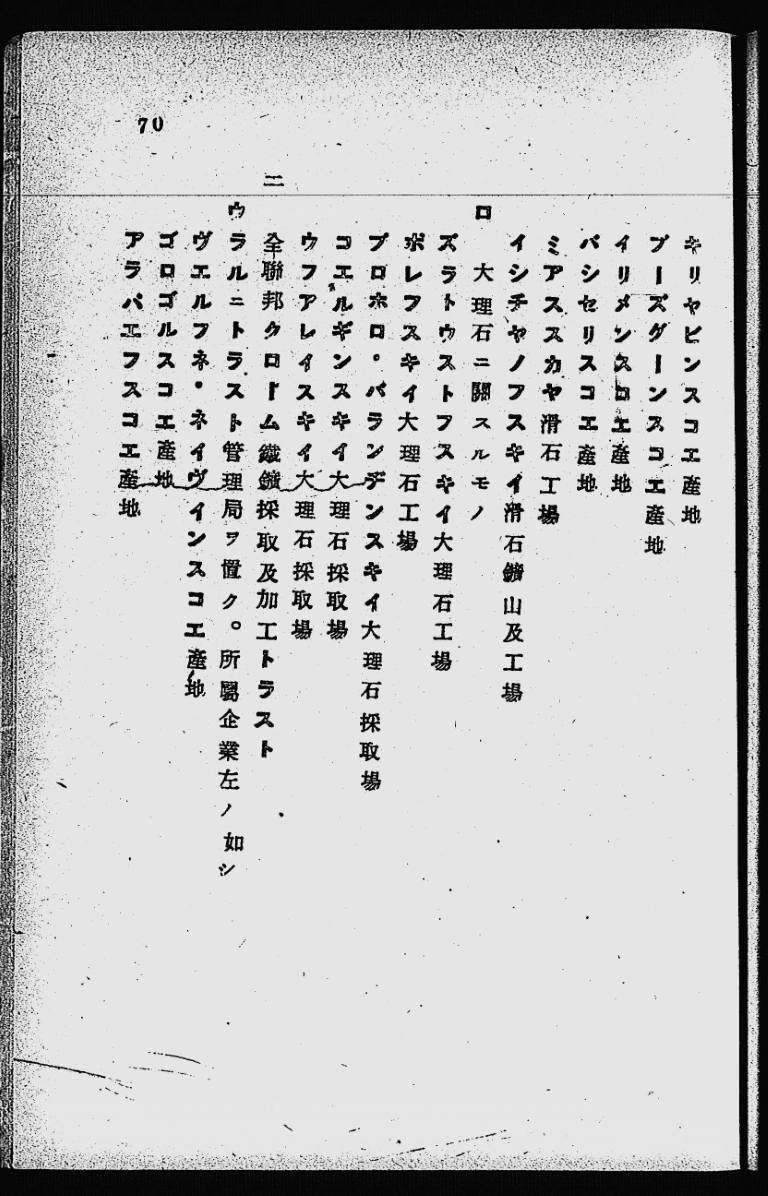 70
キリヤビンスコエ產地
ブーズダーンスコエ產地
イリメンスコエ產地
バシセリスコエ產地
ミアススカヤ滑石工場
イシチヤノフスキイ滑石鑛山及工場
ロ 大理石ニ關スルモノ
ズラトウストフスキイ大理石工場
ポレフスキイ大理石工場
プロホロ。バランヂンスキイ大理石採取場
コエルギンスキイ大理石採取場
ウフアレイスキイ大理石採取場
二 全聯邦クローム鐵鑛採取及加工トラスト
ウラルニトラスト管理局ヲ置ク。所屬企業左ノ如シ
ヴエルフネ・ネイヴインスコエ產地
ゴロゴルスコエ產地
アラパエフスコエ產地